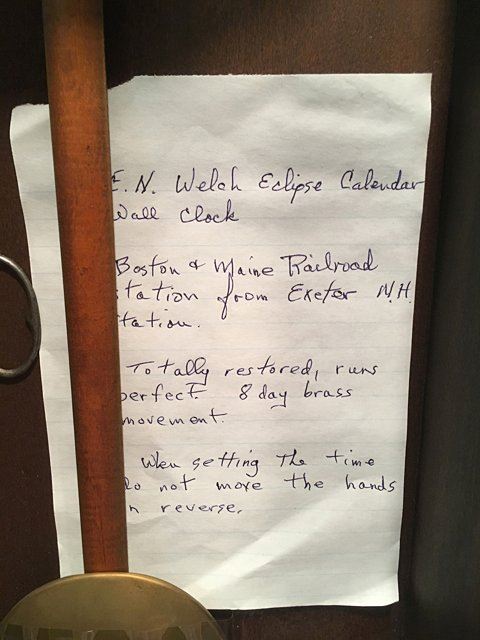 E. N. Welch Eclipse Calendar
Wall Clock
Boston & Maine Railroad
tation from Exeter N.H.
tation.
Totally restored, runs
perfect. 8 day brass
movement.
When setting the time
Do not move the hands
n reverse.